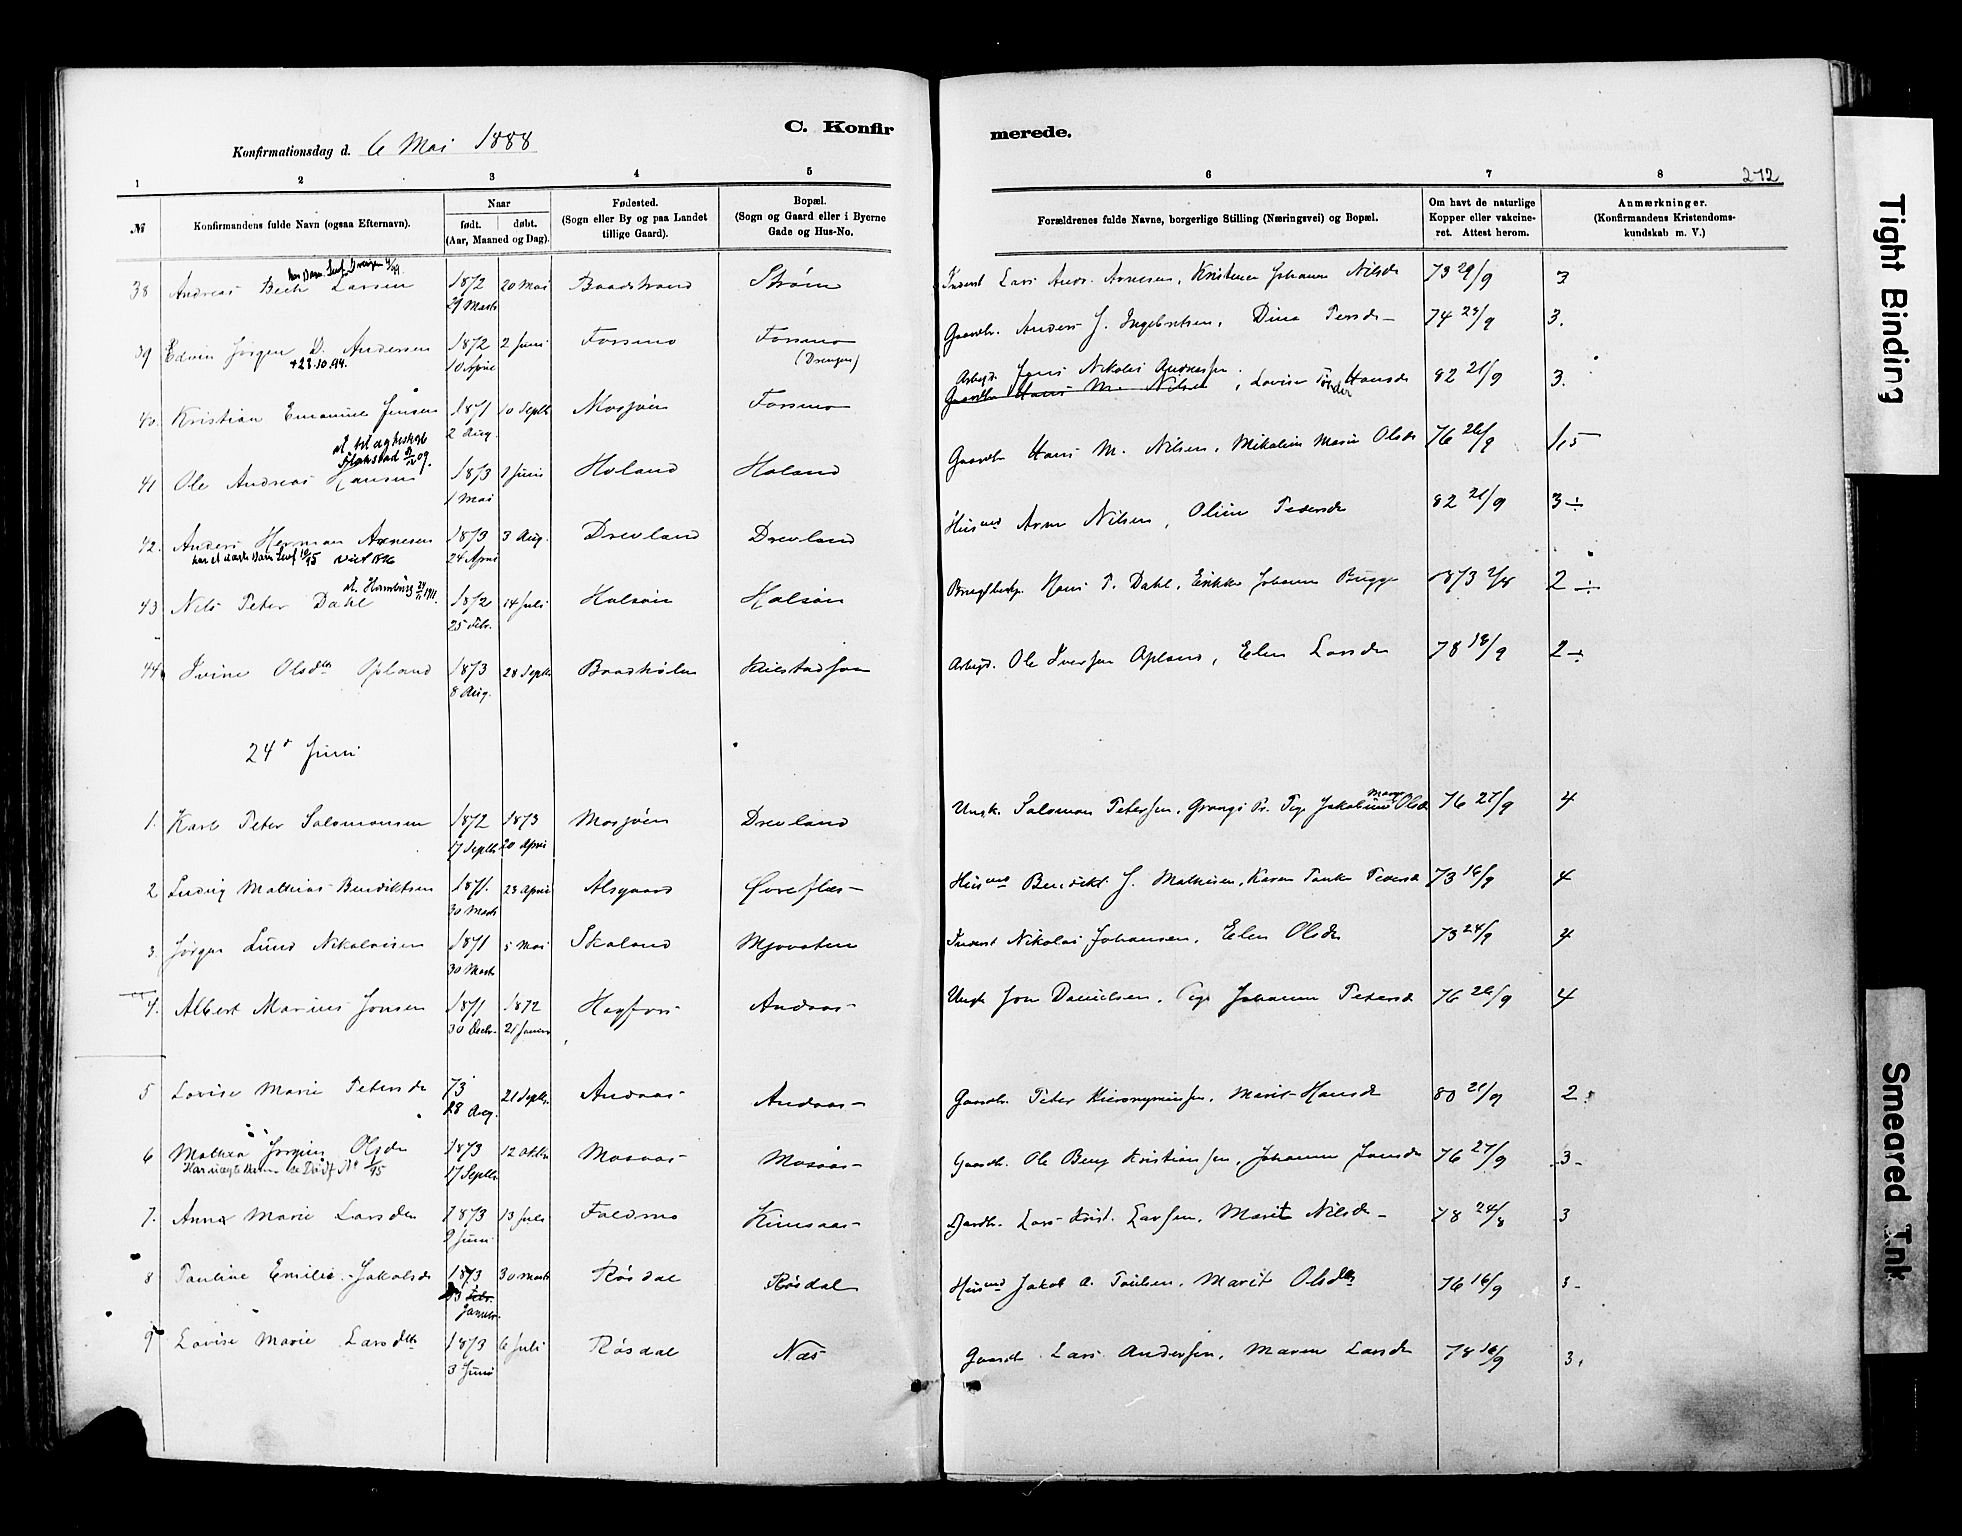 C. Konfirmerede.
Konfirmationsdag d. 6 Mai 1888
1 2 3 4 5 6 7 8 212
№ Konfirmandens fulde Navn (ogsaa Efternavn). Naar født. døbt. (Aar, Maaned og Dag). Fødested. (Sogn eller By og paa Landet tillige Gaard). Bopæl. (Sogn og Gaard eller i Byerne Gade og Hus-No. Forældrenes fulde Navne, borgerlige Stilling (Næringsvei) og Bopæl. Om havt de naturlige Kopper eller vakcineret. Attest herom. Anmærkninger. (Konfirmandens Kristendomskundskab m. V.)
38 Andreas Larsen 1872 29 Marts 20 Mai Baadstrand Strøm Inderst Lars Andr. Arnesen, Kristense Johanna Nilsd 73 29/9 3
39 Edvin Jørgen D. Andersen 1872 10 April 2 Juni Forsmo Forsmo (Drengen) Gaardbr. Anders J. Ingebretsen, Dina Persd 74 24/9 3.
+28.10.94.
40. Kristian Emanuel Jensen 1871 2 Aug. 10 Septb Mosjøen Forsmo Arbeyd. Jens Nikolai Andreassen. Gaardbr Hans M. Nilsen, Lovise Hansd 82 21/9 3.
41 Ole Andreas Hansen 1873 1 Mai 1 Juni Holand Holand Gaardbr Hans M. Nilsen, Mikaline Marie Olsd 76 26/9 1,5
42. Anders Herman Arnesen 1873 24 April 3 Aug. Drevland Drevland Husmd Arne Nilsen, Oline Pedersd 82 21/9 3 ÷
43 Nils Peter Dahl 1872 25 Febr. 14 Juli Halsøen Halsøen Hans P. Dahl, Erikka Johanna Bugge 1873 2/8 2 ÷
at. Hamburg 1911.
44. Ivine Olsdtr Opland 1873 8 Aug. 28 Septb Baadhølen Arbeyd. Ole Iversen Opland, Elen Larsd 78 18/9 2 ÷
24d Juni
1. Karl Peter Salomonsen 1872 17 Septb 1873 20 April Mosjøen Drevland Ungk. Salomon Petersen, Pige Jakobine Marie Olsd 76 27/9 4
2 Ludvig Mathias Bendiktsen 1871. 30 Marts 23 April Alsgaard Øvreflæs Husmd Bendikt J. Mathisen, Karen Pedersd 73 16/9 4
3. Jørgen Lund Nikolaisen 1871 30 Marts 5 Mai Skaland Mjovaten Inderst Nikolai Johansen, Elen Olsd 73 24/9 4
4. Albert Marius Jonsen 1871 30 Decb. 1872 21 Januar Hagfors Andaas Ungk Jon Danielsen, Pige Johanna Pedersd 76 26/9 4
5 Lovise Marie Petersd 73 28 Aug. 21 Septb. Andaas Andaas Gaardbr. Peter Hieronymussen, Marit Hansd 80 21/9 2
6 Mathea Jørgine Olsd 1873 17 Septb. 12 Oktbr Mosaas Mosaas Gaardbr. Ole Berg Kristiansen, Johanna Jonsd 76 27/9 3
7. Anna Marie Larsdtr 1873 9 Juni 13 Juli Foldmo Kimsaas Gaardbr. Lars Krist. Larsen, Marit Nilsd 78 24/8 3
8 Pauline Emilie Jakobsd 1873 Januar. 30 Marts Røsdal Røsdal Husmd Jakob A. Paulsen, Marit Olsdtr 76 16/9 3
9 Lovise Marie Larsdtr 1873 3 Juni 6 Juli Røsdal Næs Gaardbr Lars Andersen, Maren Larsd 78 16/9 3.
Tight Binding
Smeared Ink